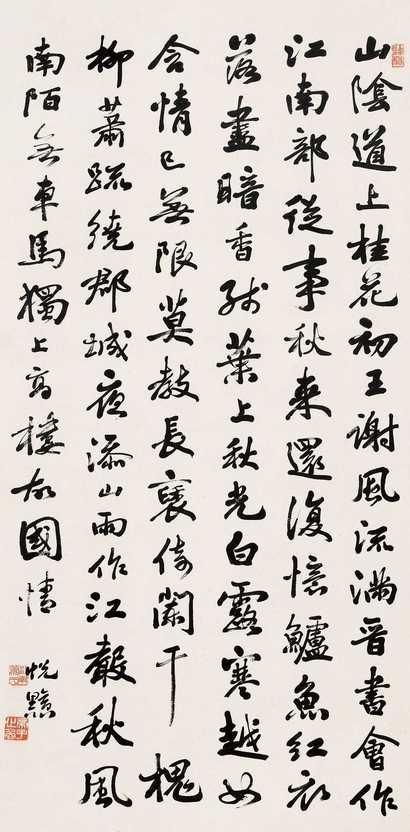 山陰道上桂花初王謝風流滿晉書會作
江南部從事秋來還復憶鱸魚紅衣
落盡暗香殘葉上秋光白露寒越女
含情已無限莫教長褏倚闌干 槐
柳蕭疏繞郡城夜添山雨作江聲秋風
南陌無車馬獨上高樓故國情